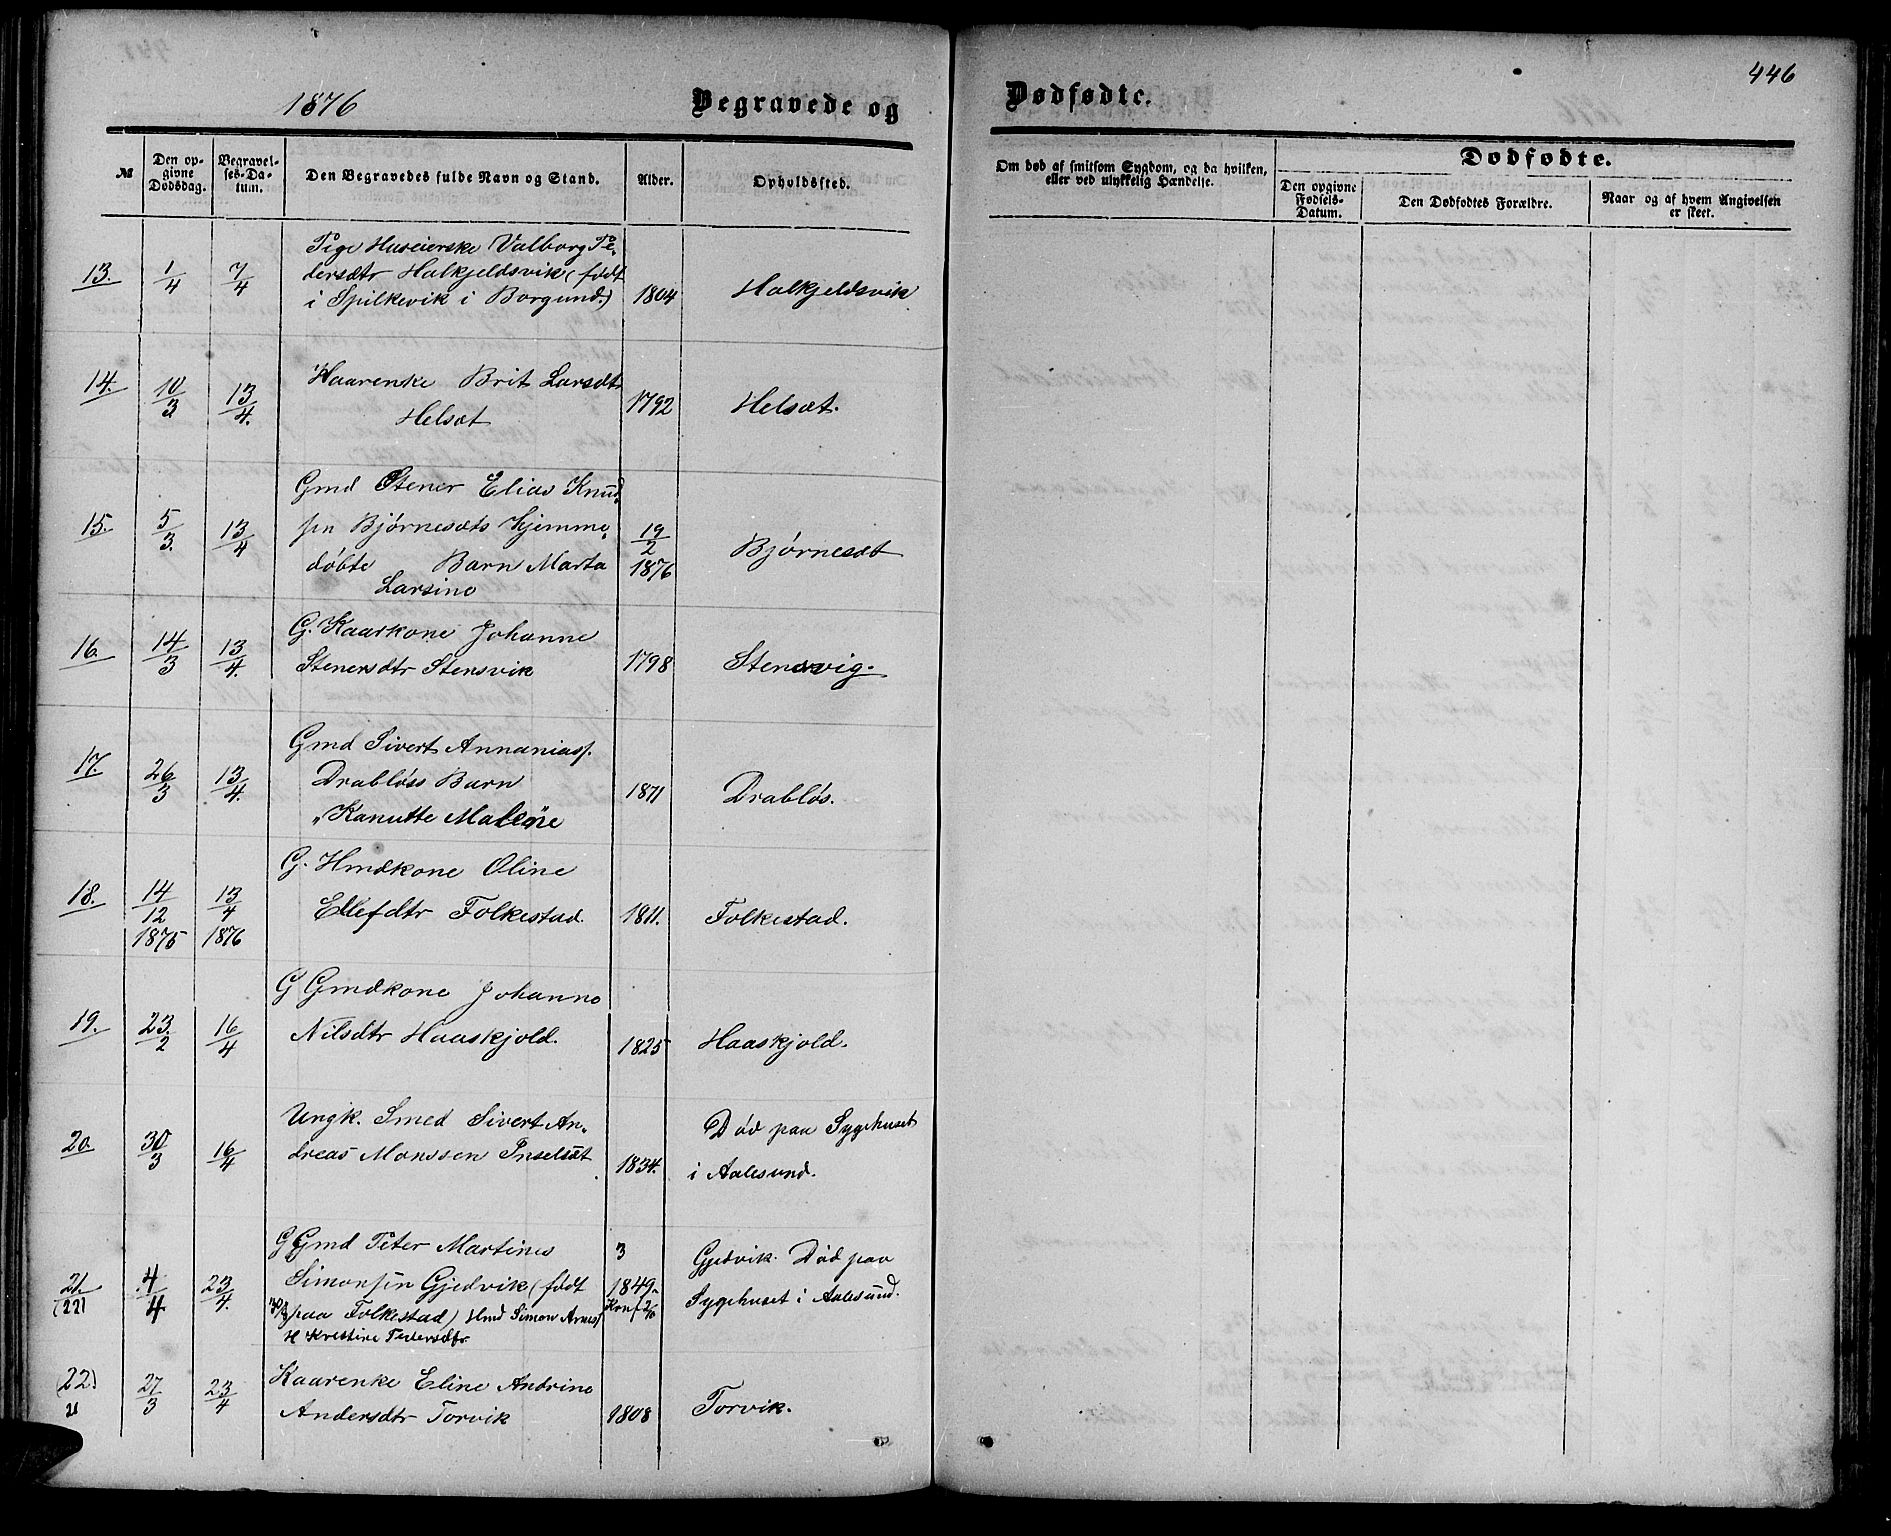 446
1876
Begravede og
Dødfødte.
№
Den op-
givne
Dødsdag.
Begravel-
ses-Da-
tum.
Den Begravedes fulde Navn og Stand.
Alder.
Opholdssted.
Om død af smitsom Sygdom, og da hvilken,
eller ved ulykkelig Hændelse.
Dødfødte.
Den opgivne
Fødsels-
Datum.
Den Dødfødtes Forældre.
Naar og af hvem Angivelsen
er skeet.
13. 1/4 7/4 Pige Huseierske Valborg Pe-
dersdtr Halkjeldsvik (født
i Spilkevik i Borgund.) 1804 Halkjeldsvik
14. 10/3 13/4. Kaarenke Brit Larsdt
Helsæt 1792 Helsæt.
15. 5/3. 13/4 Gmd Stener Elias Knud-
sen Bjørnesæts hjemme-
døbte Barn Marta
Larsine 19/2 1876 Bjørnesæt
16. 14/3 13/4. G. Kaarkone Johanne
Stenersdtr Stensvik 1798 Stensvig.
17. 26/3 13/4. Gmd Sivert Annaniass.
Drabløss Barn
Kanutte Malene 1871 Drabløs.
18. 14/12 1875 13/4 1876 G. Hmdkone Oline
Ellefdtr Folkestad. 1811. Folkestad.
19. 23/2 16/4 G Gmdkone Johanne
Nilsdtr Haaskjold. 1825 Haaskjold.
20. 30/3 16/4 Ungk. Smed Sivert An-
dreas Monssen Inselsæt 1834. Død paa Sygehuset
i Aalesund.
21. (22) 4/4 23/4. G Gmd Peter Martinus
Simonsen Gjedvik (født
paa Folkestad) Hmd Simon Arness
H Kristine Pedersdtr 3 1849. Gjedvik. Død paa
Sygehuset i Aalesund.
(22) 21 27/3 23/4 Kaarenke Eline Andrine
Andersdtr Torvik 1808 Torvik.